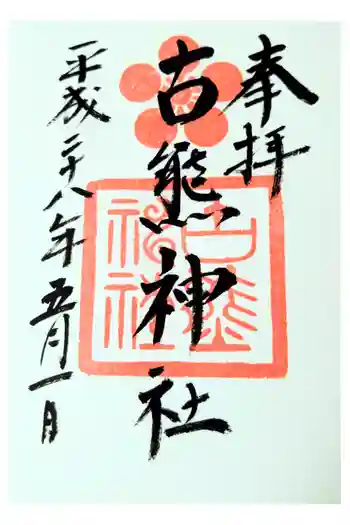 奉拝
古熊神社
平成二十八年五月一日
古熊
神社